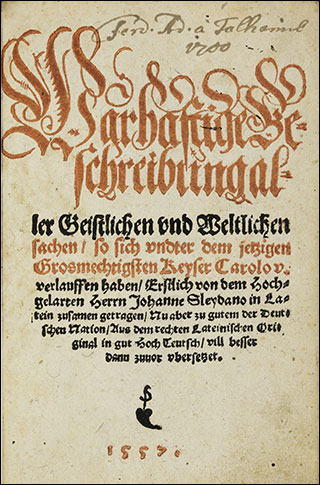 Ferd. Ad. à Falhaimb
1700
Warhafftige Be-
schreibung al-
ler Geistlichen vnd Weltlichen
sachen / so sich vndter dem jetzigen
Grosmechtigsten Keyser Carolo v.
verlauffen haben / Erstlich von dem Hoch-
gelarten Herrn Johanne Sleydano in La-
tein zusamen getragen / Nu aber zu gutem der Deut-
schen Nation / Aus dem rechten Lateinischen Ori-
ginal in gut Hoch Teutsch / vill besser
dann zuuor vbersetzet.
1557.